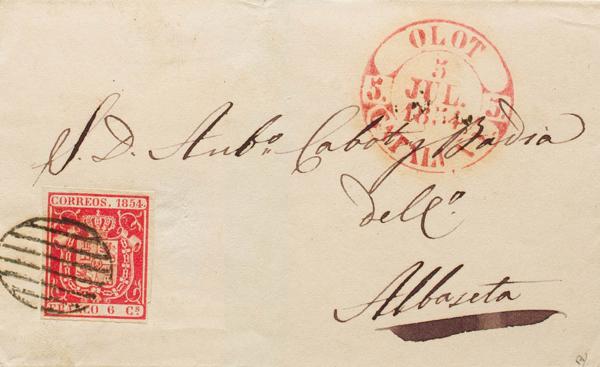 OLOT
5
JUL.
1854
5. 5.
S. D. Antº. Cabot y Badia
del Cº.
Albaseta
CORREOS. 1854.
FRANCO 6 Cs.